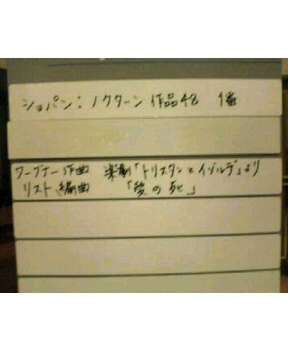 ショパン：ノクターン 作品48 1番
ワーグナー作曲 楽劇「トリスタンとイゾルデ」より
リスト編曲 「愛の死」